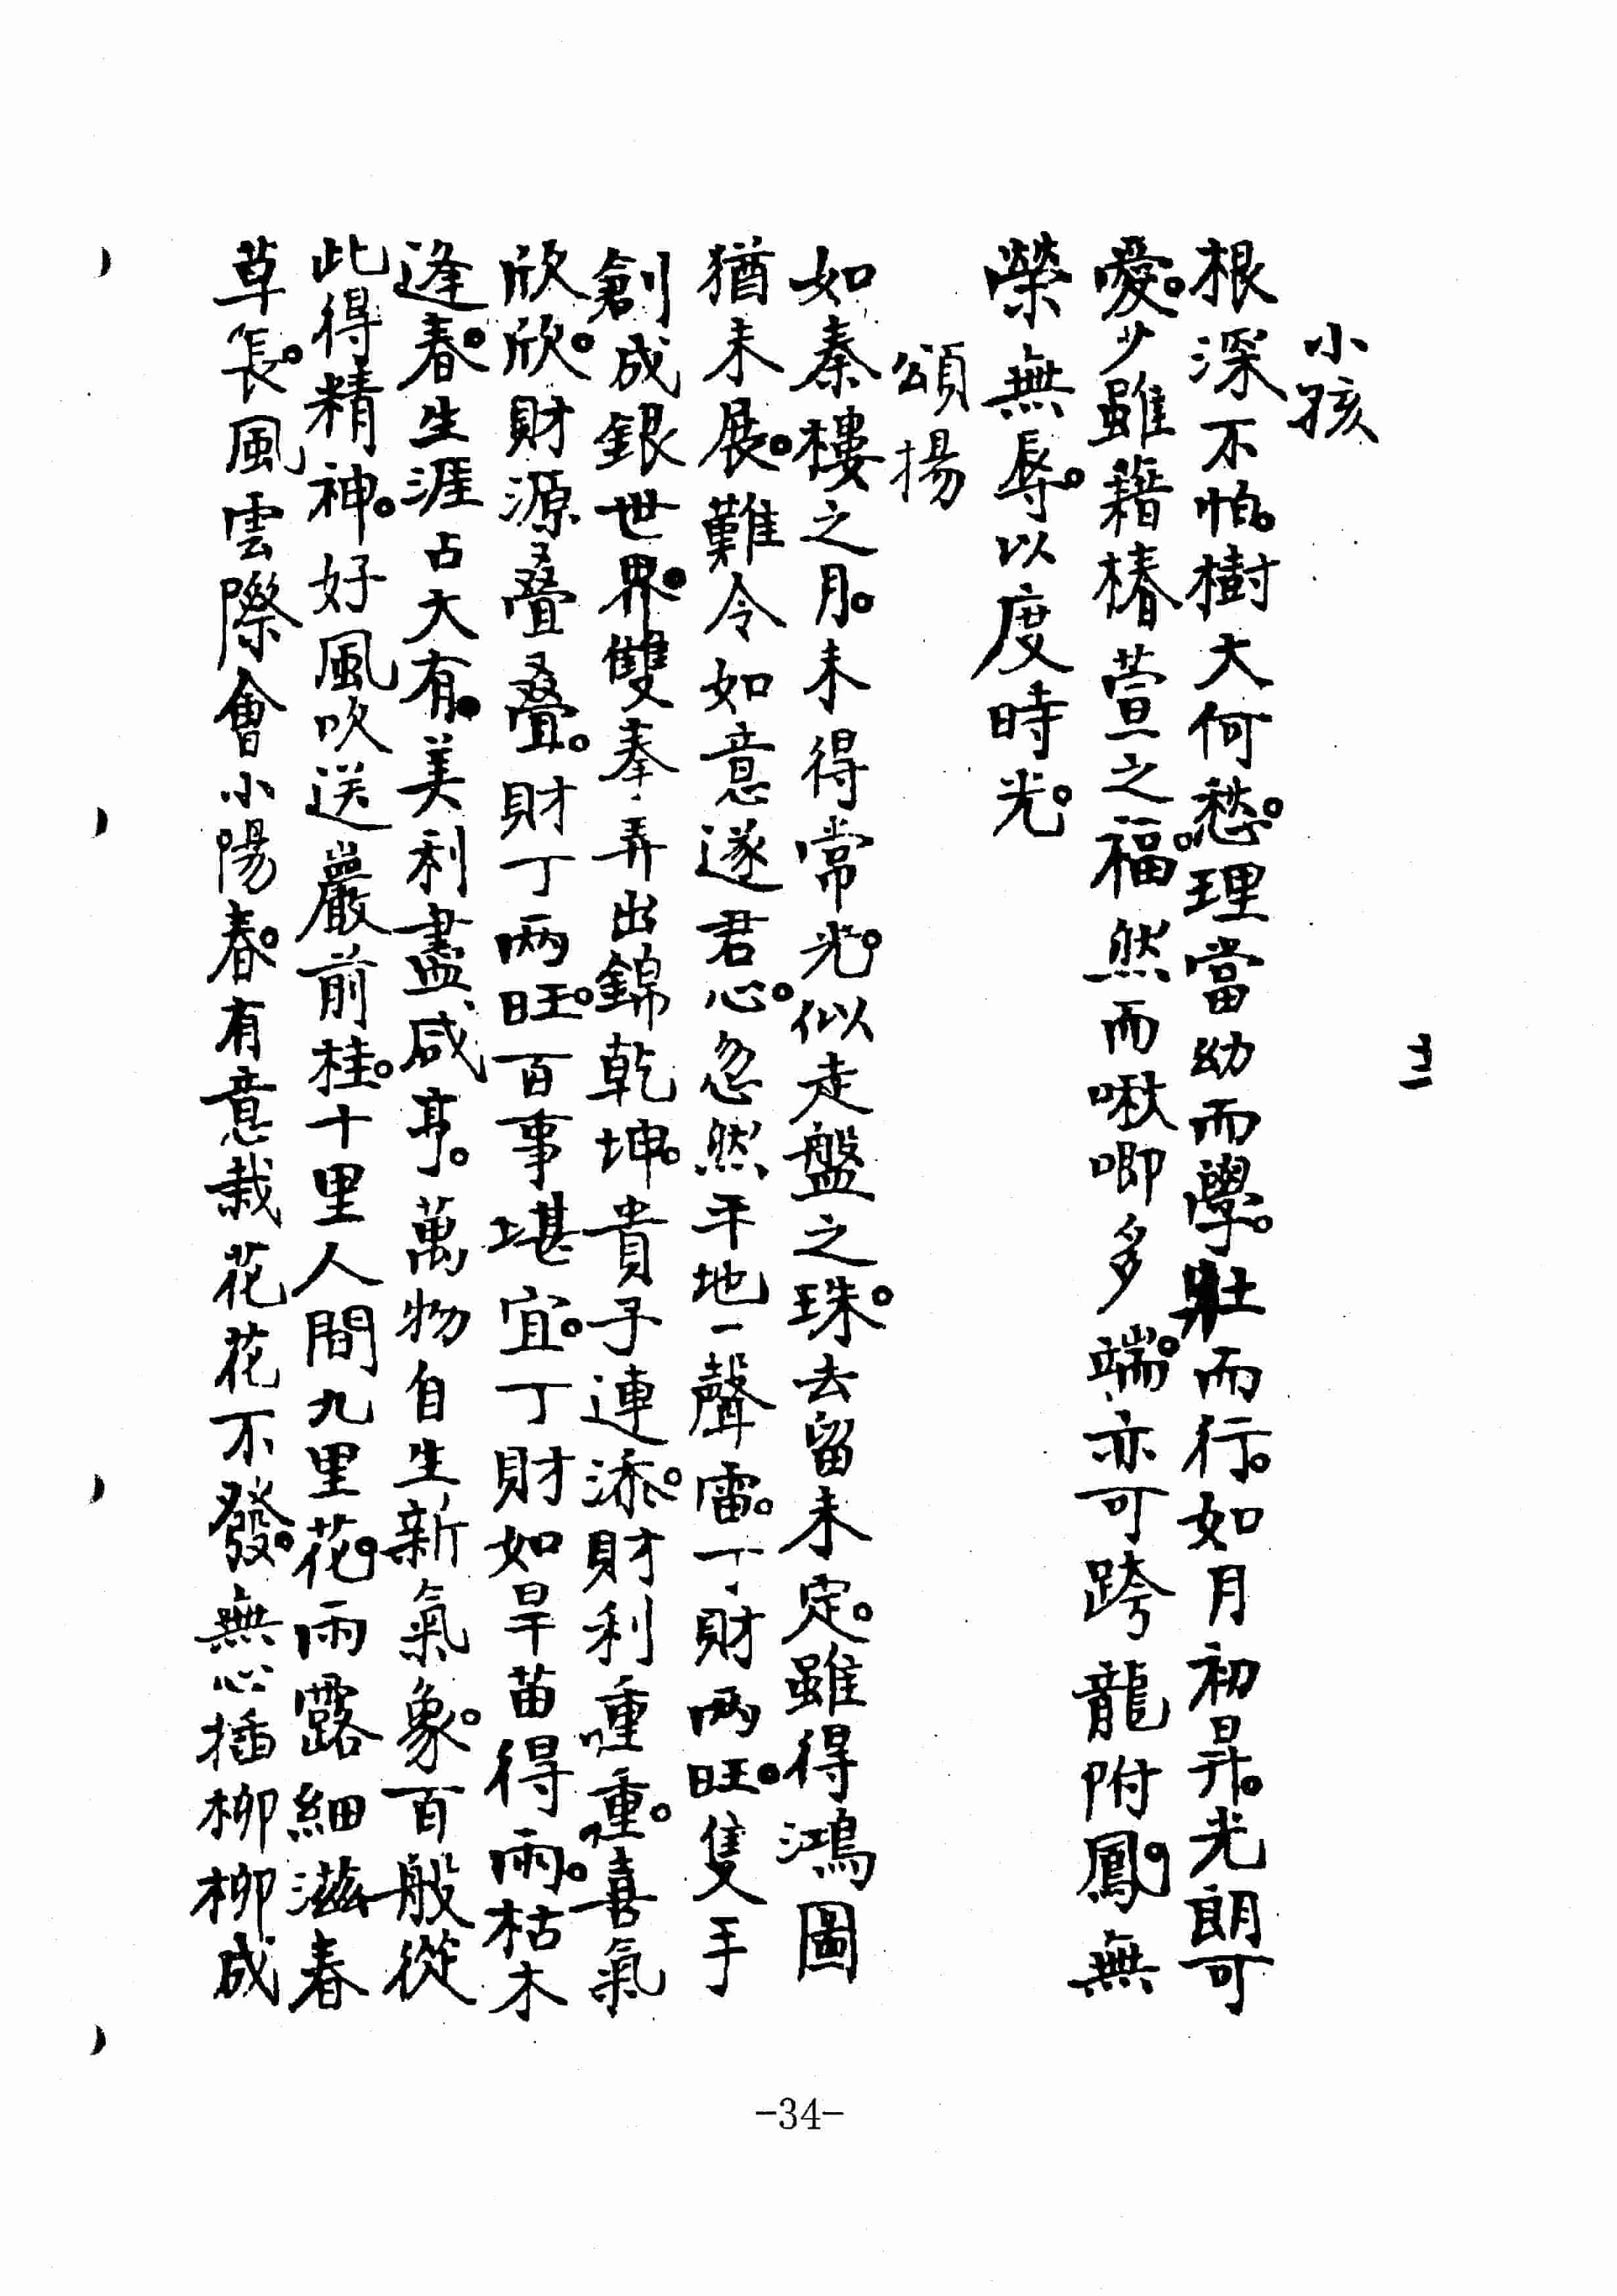 小孩
根深不怕。樹大何愁。理當幼而學。壯而行。如月初昇。光朗可
愛。少雖藉椿萱之福。然而啾唧多端。亦可跨龍附鳳。無
榮無辱。以度時光。
頌揚
如秦樓之月。未得常光。似走盤之珠。去留未定。雖得鴻圖
猶未展。難令如意遂君心。忽然平地一聲雷。丁財兩旺。隻手
創成銀世界。雙拳弄出錦乾坤。貴子連添。財利重重。喜氣
欣欣。財源疊疊。財丁兩旺。百事堪宜。丁財如旱苗得雨。枯木
逢春。生涯占大有。美利盡咸亨。萬物自生新氣象。百般從
此得精神。好風吹送巖前桂。十里人間九里花。雨露細滋春
草長。風雲際會小陽春。有意栽花花不發。無心插柳柳成
-34-